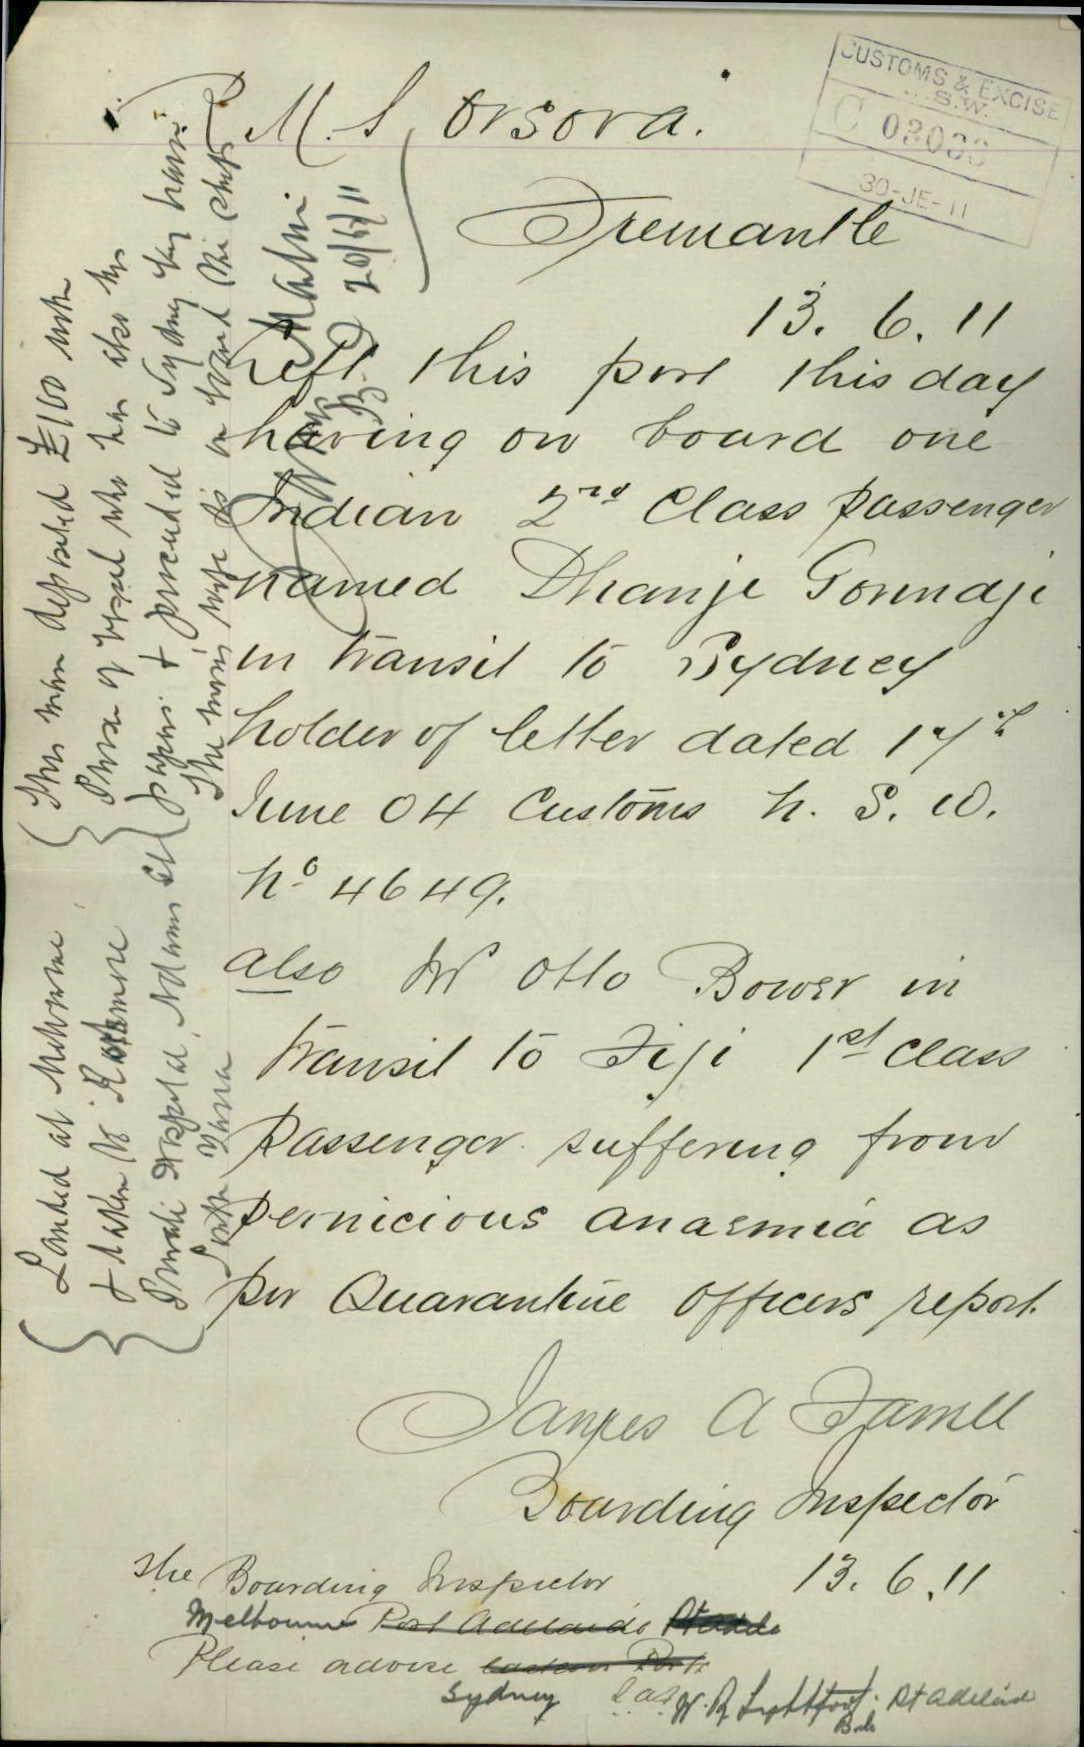 R M S Orsova.
CUSTOMS & EXCISE
N.S.W.
C 03033
30-JE-11
Fremantle
13. 6. 11
Left this port this day
having on board one
Indian 2nd Class passenger
named Dhanji Govindji
in transit to Sydney
holder of letter dated 17th
June 04 Customs N. S. W.
No 4649.
also Mr Otto Bower in
transit to Fiji 1st class
passenger suffering from
pernicious anaemia as
per Quarantine Officers report.
James A Farrell
Boarding Inspector
13. 6. 11
The Boarding Inspector
Melbourne Port Adelaide Pt Adelaide
Please advise Eastern Ports
Sydney W. R. Lightfoot. Pt Adelaide
This man deposited £100 with
Purser of vessel who has also his
papers & proceeded to Sydney by
The man's wife is on board the ship
20/6/11
Landed at Melbourne
& taken to
Private Hospital, Adams St
South Yarra